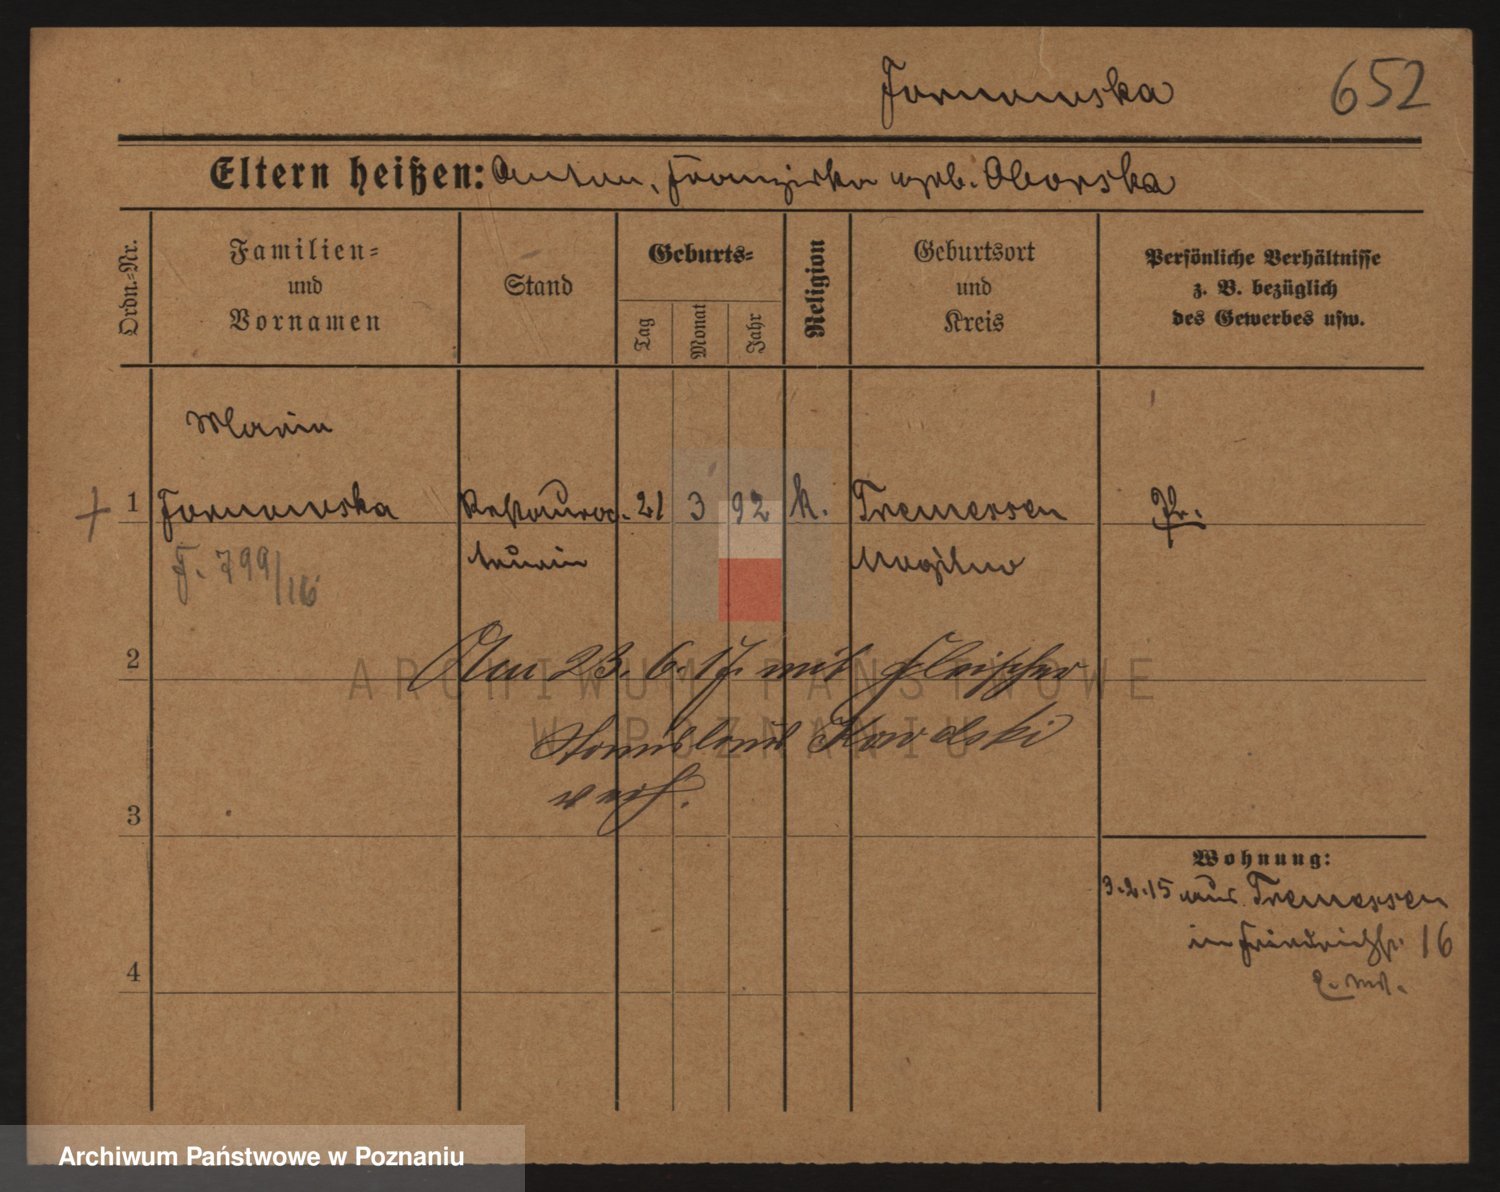 Jornowska 652
Eltern heißen: Anton, Franziska geb. Oborska
Ordn.-Nr.
Familien-
und
Vornamen
Stand
Geburts-
Tag
Monat
Jahr
Religion
Geburtsort
und
Kreis
Persönliche Verhältnisse
z. B. bezüglich
des Gewerbes usw.
Maria
1 Jornowska Restaura- 21 3 92 k. Tremessen Pr.
teurin Mogilno
J. 799/16
2 Am 23. 6. 17. mit Fleischer
ARCHIWUM PAŃSTWOWE
W POZNANIU
Stanislaus
verh.
3
Wohnung:
3.2.15 aus Tremessen
in Friedrichstr. 16
4
Archiwum Państwowe w Poznaniu